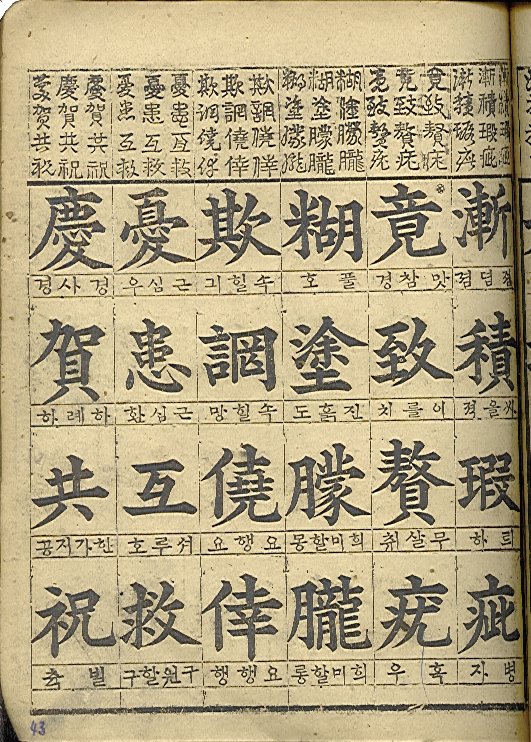 漸積瑕疵
竟致贅疣
糊塗朦朧
糊塗朦朧
欺誷僥倖
欺誷僥倖
欺誷僥倖
憂患互救
憂患互救
憂患互救
慶賀共祝
慶賀共祝
慶賀共祝
漸
積 싸을젹
瑕 틔하
疵 병자
竟 맛참경
致 이를치
贅 무살취
疣 혹우
糊 풀호
塗 진흙도
朦 희미할몽
朧 희미할룽
欺 속힐긔
誷 속힐망
僥 요행요
倖 요행행
憂 근심우
患 근심환
互 셔루호
救 구원할구
慶 경사경
賀 하례하
共 한가지공
祝 빌축
43